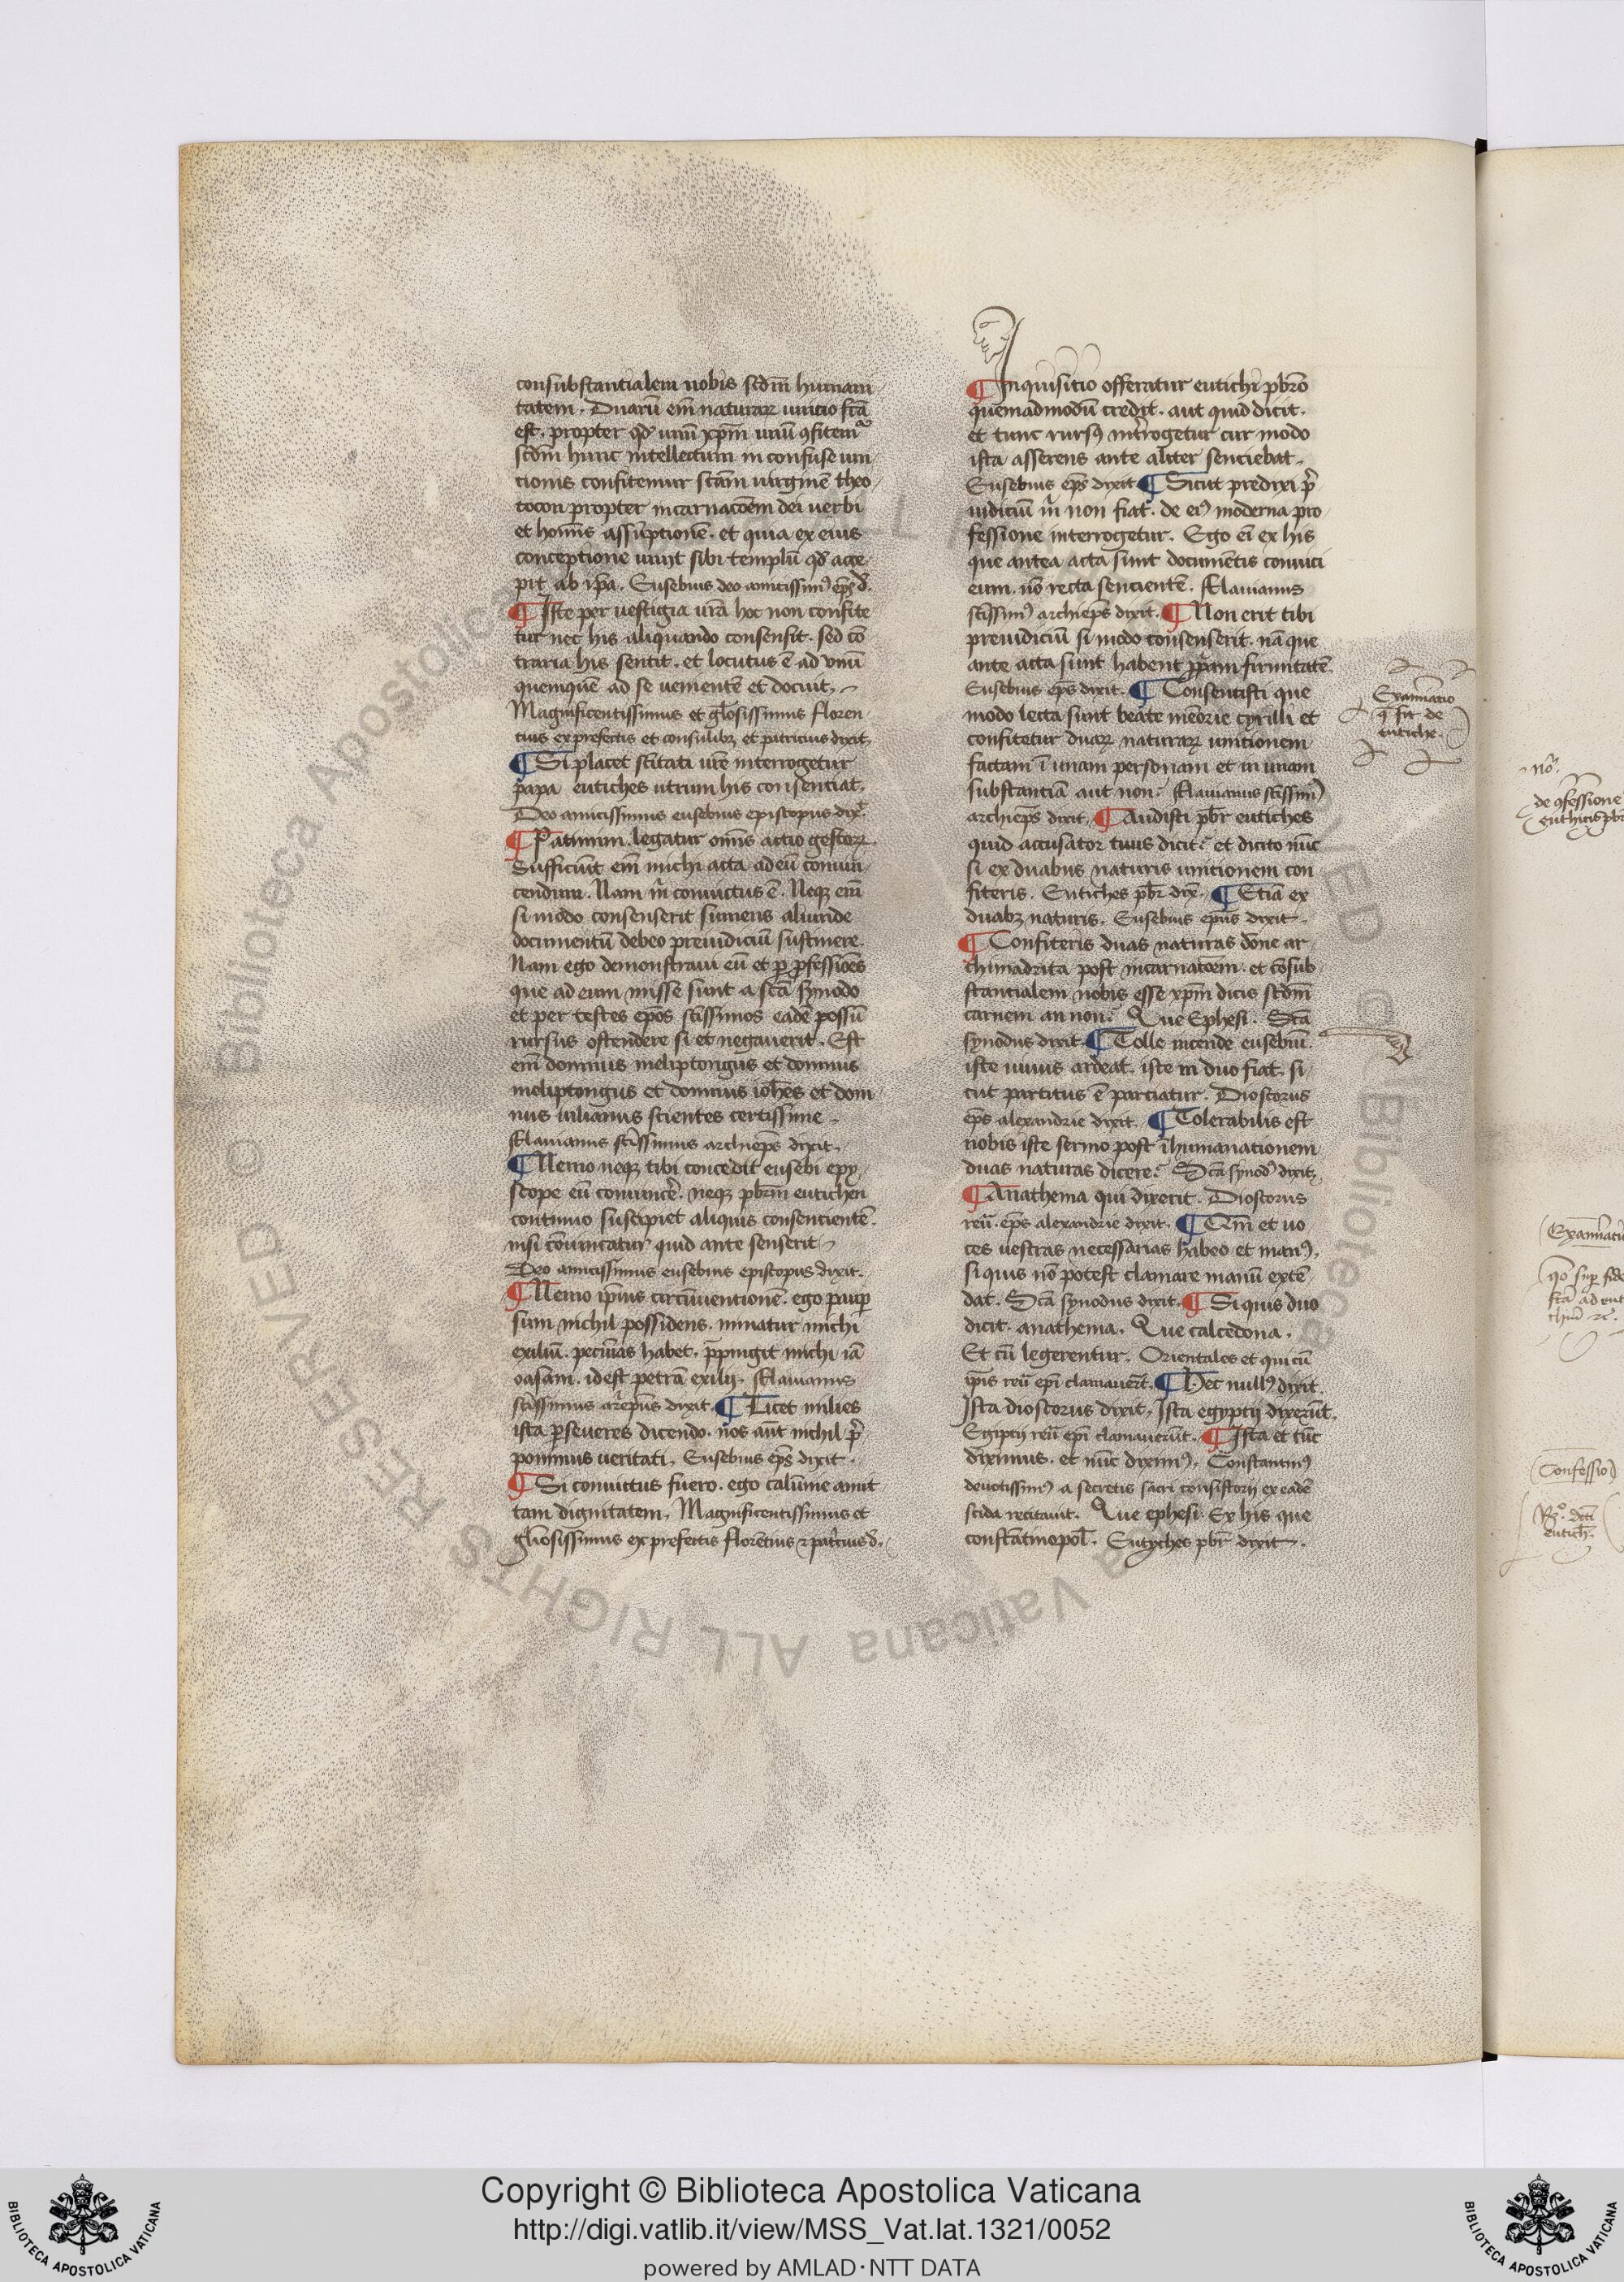 consubstantialem nobis scdm̄ humani
tatem. Duarū em̄ naturaꝝ unitio fc̄a
est. propter qd̓ unū xp̄m unū ꝯfitemᷣ
scdm̄ hunc intellectum in confuse uni
tionis confitemur sc̄am uirginē theo
tocon propter incarnacōem dei uerbi
et homīs assūptionē. et quia ex eius
conceptione uniit sibi templū qd̓ acce
pit ab ip̄a. Eusebius deo amicissimꝰ ep̄s d.
¶ Iste per uestigia ur̄a hoc non confite
tur nec his aliquando consensit. sed cō
traria his sentit. et locutus ē ad vnū
quemquē ad se uenientē et docuit.
Magnificentissimus et gl̄osissimus floren
tius ex prefectis et consulibꝫ et patricius dixit.
¶ Si placet sc̄itati ur̄e interrogetur
papa eutiches utrum his consentiat.
Deo amicissimus eusebius episcopus dix̄.
¶ Patimini. legatur om̄is actio gestoꝝ.
Sufficiūt em̄ michi acta ad eū conuin
cendum. Nam iā conuictus ē. Neqꝫ em̄
si modo consenserit sumens aliunde
documentū debeo preiudiciū sustinere.
Nam ego demonstraui eū et ꝑ ꝓfessiōes
que ad eum misse sunt a sc̄a synodo
et per testes ep̄os sc̄issimos eadē possū
rursus ostendere si et negauerit. Est
em̄ domnus meliptongus et domnus
meliptongus et domnus ioh̄es et dom
nus iulianus scientes certissime.
Flauianus sc̄issimus archiep̄s dixit.
¶ Nemo neqꝫ tibi concedit eusebi epy
scope eū conuincē. neqꝫ pbr̄m eutichen
continuo suscipiet aliquis consencientē.
nisi cōuincatur quid ante senserit
Deo amicissimus eusebius episcopus dixit.
¶ Nemo ip̄ius circūuentionē. ego paup̄
sum nichil possidens. minatur michi
exiliū. pecūias habet. p̄pingit michi iā
oasam. id est petrā exilij. Flauianus
sc̄issimus ar̄ep̄us dixit. ¶ Licet milies
ista ꝑseueres dicendo. nos aūt nichil p̄
ponimus ueritati. Eusebius ep̄s dixit.
¶ Si conuictus fuero. ego calūnie amit
tam dignitatem. Magnificentissimus et
gl̄iosissimus ex prefectis florētius ⁊ pat̓cius d.
¶ Inquisitio offeratur eutichi pbr̄o
quemadmodū credit. aut quid dicit.
et tunc rursꝰ int̓rogetur cur modo
ista asserens ante aliter senciebat.
Eusebius ep̄s dixit ¶ Sicut predixi p̄
iudiciū m̄ non fiat. de eiꝰ moderna pro
fessione interrogetur. Ego ei̅ ex his
que antea acta sunt documētis conuici
eum. nō recta sencientē. Flauianus
sc̄issimꝰ archiep̄s dixit. ¶ Non erit tibi
preiudiciū si modo consenserit. nā que
ante acta sunt habent ꝓpam firmitatē.
Eusebius ep̄s dixit. ¶ Consentisti que
modo lecta sunt beate mēorie cyrilli et
confitetur duaꝝ naturaꝝ unitionem
factam ī unam personam et in unam
substantiā aut non? Flauianus sc̄issimꝰ
archiep̄s dixit. ¶ Audisti pbr̄ eutiches
quid accusator tuus dicit? et dicito nūc
si ex duabus naturis unitionem con
fiteris. Eutiches pbr̄ dix̄. ¶ Etiā ex
duabꝫ naturis. Eusebius ep̄us dixit.
¶ Confiteris duas naturas dōne ar
chimadrita post incarnatōem. et cōsub
stantialem nobis esse xp̄m dicis scdm̄
carnem an non? Que Ephesi. Sc̄a
synodus dixit. ¶ Tolle incende eusebiū.
iste uiuus ardeat. iste in duo fiat. si
cut partitus ē parciatur. Dioscorus
ep̄s alexandrie dixit. ¶ Tolerabilis est
nobis iste sermo post īhumanationem
duas naturas dicere? Sc̄a synodꝰ dixit.
¶ Anathema qui dixerit. Dioscorus
reū. ep̄s alexandrie dixit. ¶ Qm̄ et uo
ces uestras necessarias habeo et manꝰ.
si quis nō potest clamare manū extē
dat. Sc̄a synodus dixit. ¶ Si quis duo
dicit. anathema. Que calcedona.
Et cū legerentur. Orientales et qui cū
ip̄is reū ep̄i clamauer̄t. ¶ Hec nullꝰ dixit.
Ista dioscorus dixit. Ista egyptij dixerūt.
Egiptij reū ep̄i clamauerūt. ¶ Ista et tūc
diximus. et nūc diximꝰ. Constantinꝰ
deuotissimꝰ a secretis sacri consistorij ex eadē
scida recitauit. Que ephesi. Ex his que
constātinopol̄. Eutyches pbr̄ dixit.
Examīatio
q̄ fit de
eutiche.
no͛.
de ꝯfessione
Confessio
Copyright © Biblioteca Apostolica Vaticana
http://digi.vatlib.it/view/MSS_Vat.lat.1321/0052
powered by AMLAD·NTT DATA
BIBLIOTECA APOSTOLICA VATICANA
BIBLIOTECA APOSTOLICA VATICANA